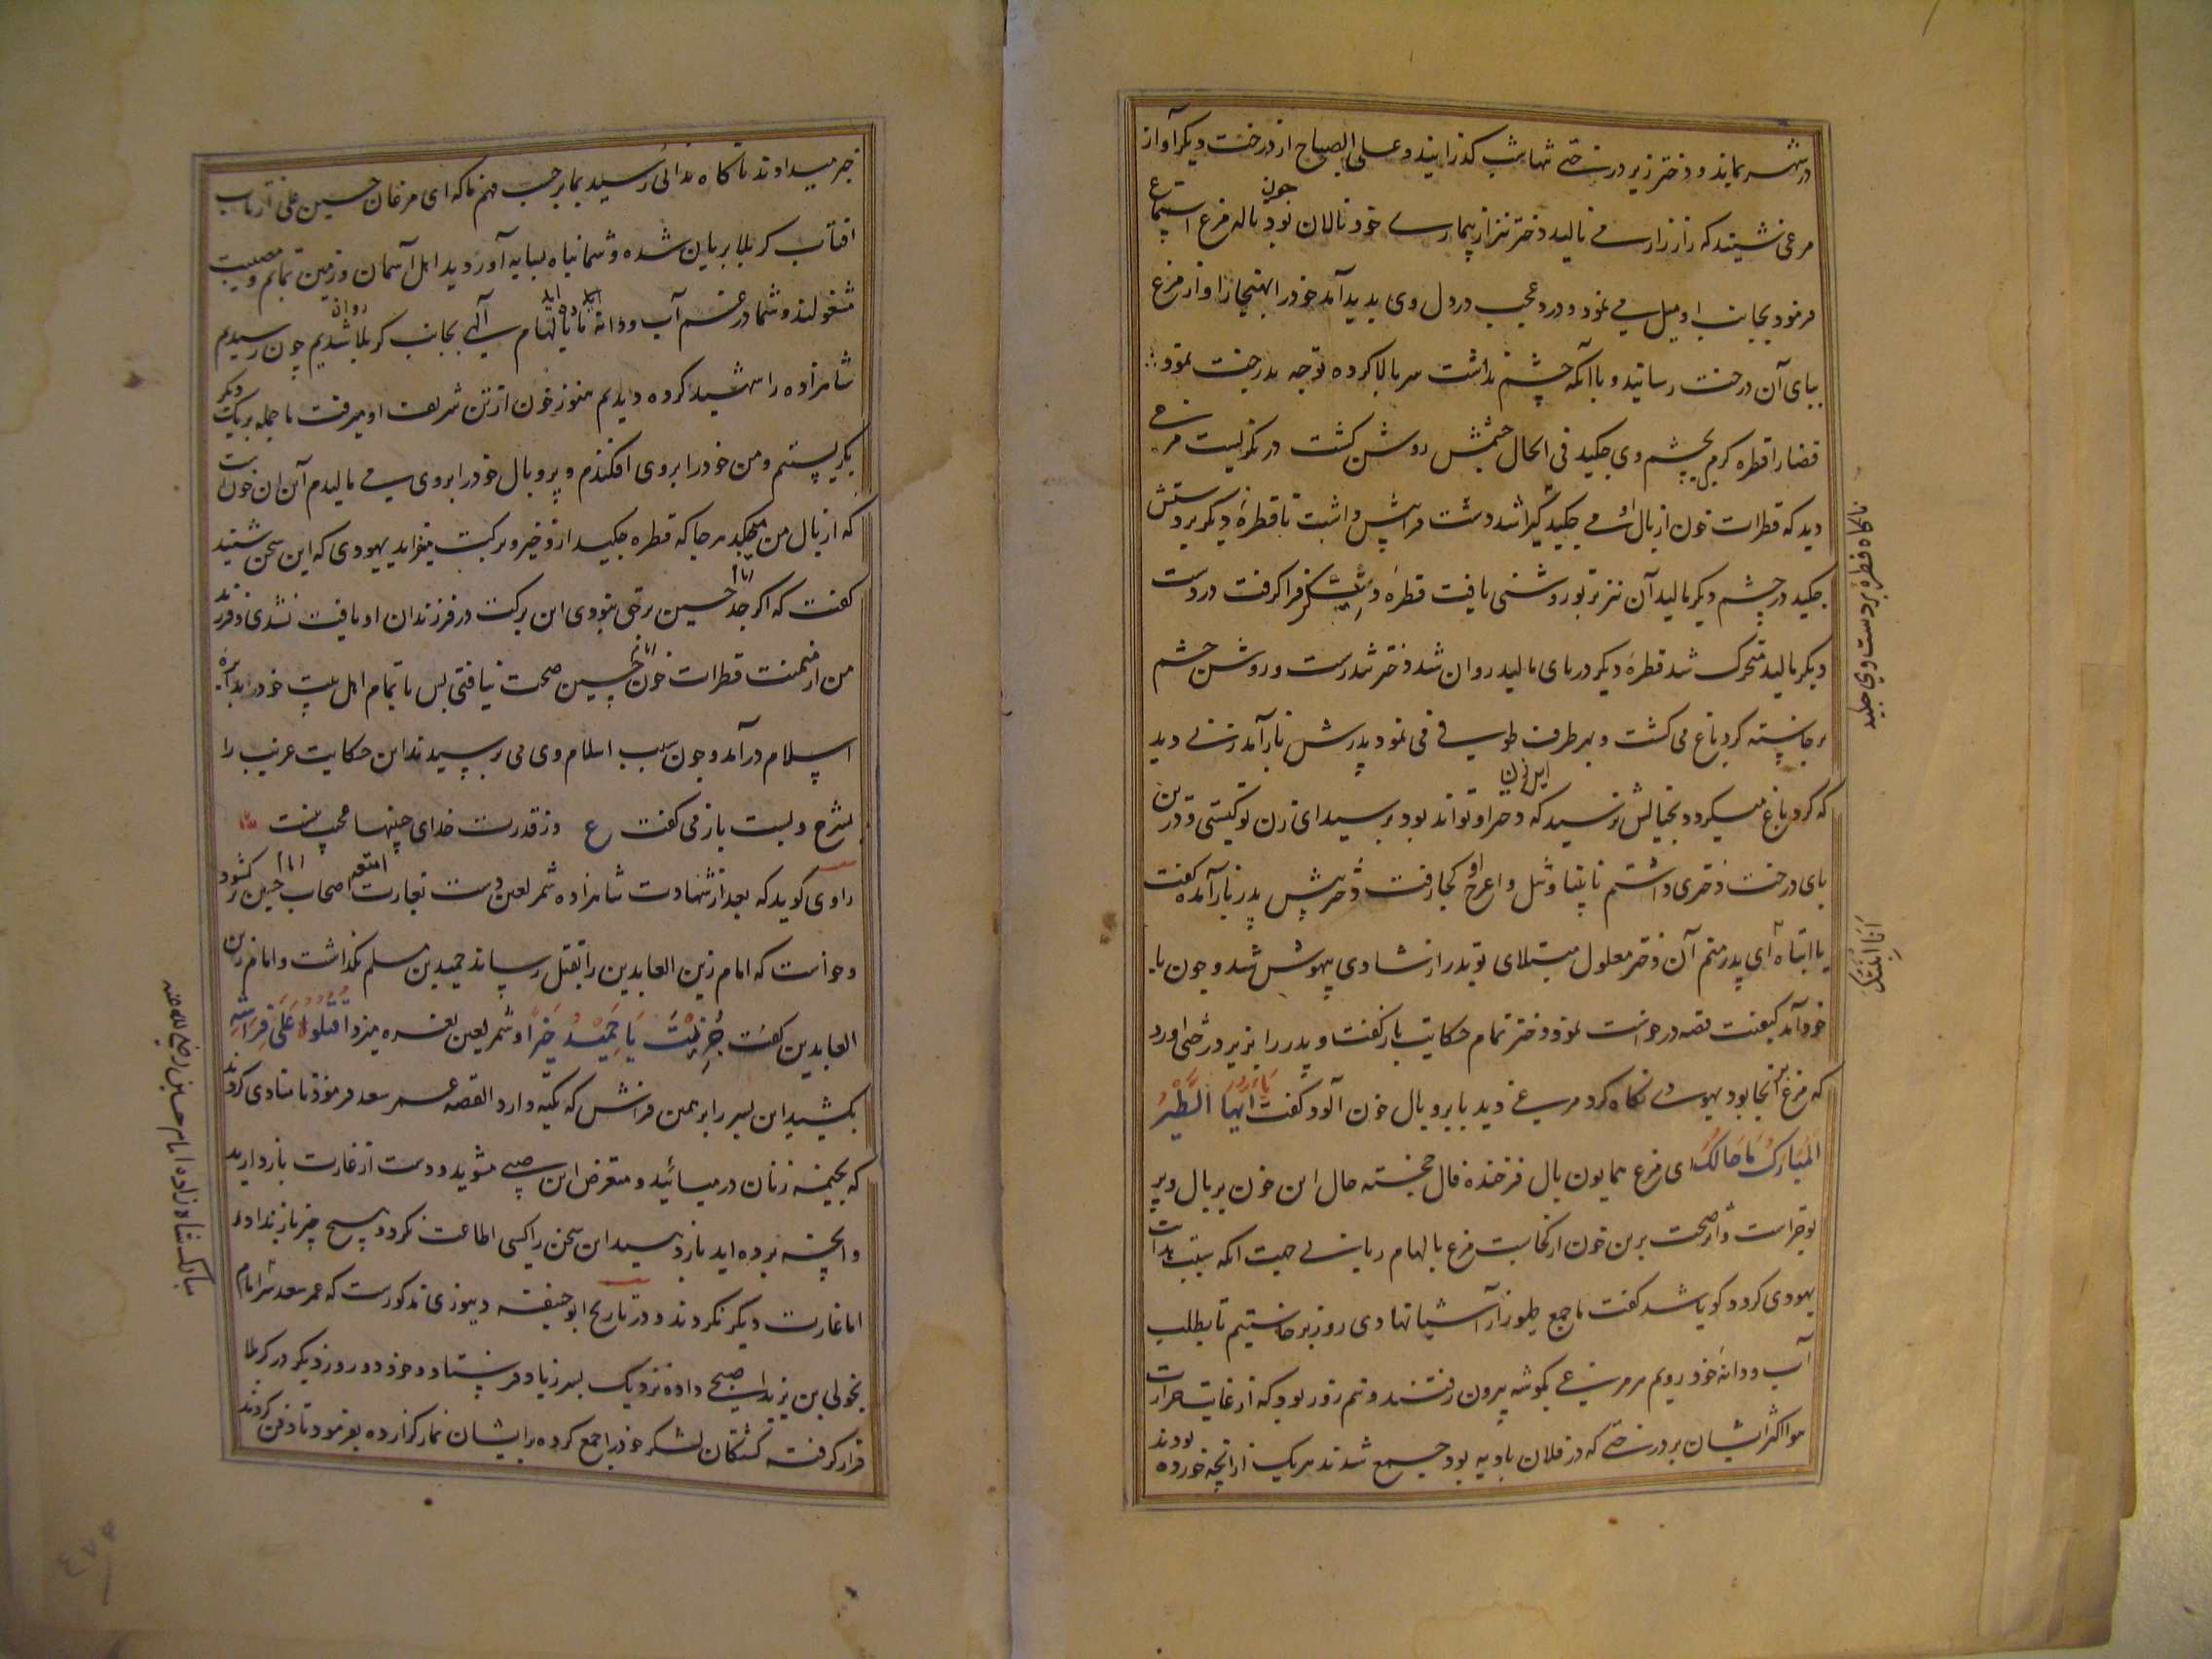 در شهر بماند و دختر زیر درختی تنها شب گذرانید و علی الصباح از درخت دیگر آواز
مرغی شنید که زار زار می نالید دختر نیز از بیماری خود نالان بود چون ناله مرغ استماع
فرمود بجانب او میل می نمود و درد عجب در دل وی پدید آمد خود را بهنجار آواز مرغ
بپای آن درخت رسانید و با آنکه چشم نداشت سر بالا کرده توجه بدرخت نمود
قضا را قطره گرم بچشم وی چکید فی الحال چشمش روشن گشت در نگریست مرغی
دید که قطرات خون از بال او می چکید دست فراپیش داشت تا قطرهٔ دیگر بر دستش
چکید در چشم دیگر مالید آن نیز بنور روشنی یافت قطره فرا گرفت در دست
دیگر مالید متحرک شد قطرهٔ دیگر در پای مالید روان شد دختر تندرست و روشن چشم
برخاسته گرد باغ می گشت و بهر طرف طوفی می نمود پدرش باز آمد زنی دید
که گرد باغ میگردد بخیالش نرسید که دختر او تواند بود پرسید ای زن تو کیستی و درین
پای درخت دختری داشتم نابینا و شل و اعرج او کجا رفت دختر پیش پدر باز آمده گفت
یا ابتاه ای پدر منم آن دختر معلول مبتلای تو پدر از شادی بیهوش شد و چون با
خود آمد کیفیت قصه درخواست نمود دختر تمام حکایت باز گفت و پدر را بزیر درختی آورد
که مرغ آنجا بود یهودی نگاه کرد مرغی دید با پر و بال خون آلود گفت ایها الطیر
المبارک ما حالک ای مرغ همایون بال فرخنده فال خجسته حال این خون بر بال و پر
تو چراست و از صحت برین خون از کجاست مرغ بالهام ربانی جهت آنکه سبب هدایت
یهودی گردد گویا شد گفت ما جمع طیور از آشیانها دی روز برخاستیم تا بطلب
آب و دانهٔ خود رویم هر مرغی بگوشه بیرون رفتند و نیم روز بود که از غایت حرارت
هوا اکثر ایشان بر درختی که در فلان بادیه بود جمع شدند هر یک از آنچه خورده بودند
خبر میدادند ناگاه ندائی رسید که ای مرغان حسین علی در تاب
آفتاب کربلا بریان شده و شما پناه بسایه آوردید اهل آسمان و زمین بماتم و مصیبت
مشغولند و شما در غم آب و دانه اید ما بالهام الهی بجانب کربلا روان شدیم چون رسیدیم
شاهزاده را شهید کرده دیدیم هنوز خون از تن شریف او میرفت ما جمله بر یک دیگر
بگریستیم و من خود را بر وی افکندم و پر و بال خود را بر وی می مالیدم این آن خونست
که از بال من میچکد هر جا که قطره چکید ازو خیر و برکت میزاید یهودی که این سخن شنید
گفت که اگر جد امام حسین برحق نبودی این برکت در فرزندان او یافت نشدی و فرزند
من از میمنت قطرات خون امام حسین صحت نیافتی پس با تمام اهل بیت خود
اسلام در آمد و چون سبب اسلام وی می پرسیدند این حکایت غریب را
بشرح و بسط باز می گفت ع وز قدرت خدای چنینها عجب نیست
راوی گوید که بعد از شهادت شاهزاده شمر لعین دست بغارت امتعه اصحاب امام حسین بر گشود
و خواست که امام زین العابدین را بقتل رساند حمید بن مسلم نگذاشت و امام زین
العابدین گفت جزیت یا حمید خیرا و شمر لعین نعره میزد اقتلوا علی فراشه
بکشید این پسر را بر همین فراش که تکیه دارد القصه عمر سعد فرمود تا منادی کردند
که بخیمه زنان در میائید و متعرض این صبی مشوید و دست از غارت بازدارید
و آنچه برده اید باز دهید این سخن را کسی اطاعت نکرد و هیچ چیز باز ندادند
اما غارت دیگر نکردند و در تاریخ ابو حنیفه دینوری مذکورست که عمر سعد سر امام
بخولی بن یزید اصبحی داده نزدیک پسر زیاد فرستاد و خود دو روز دیگر در کربلا
قرار گرفت کشتگان لشکر خود را جمع کرده بر ایشان نماز گزارده بفرمود تا دفن کردند